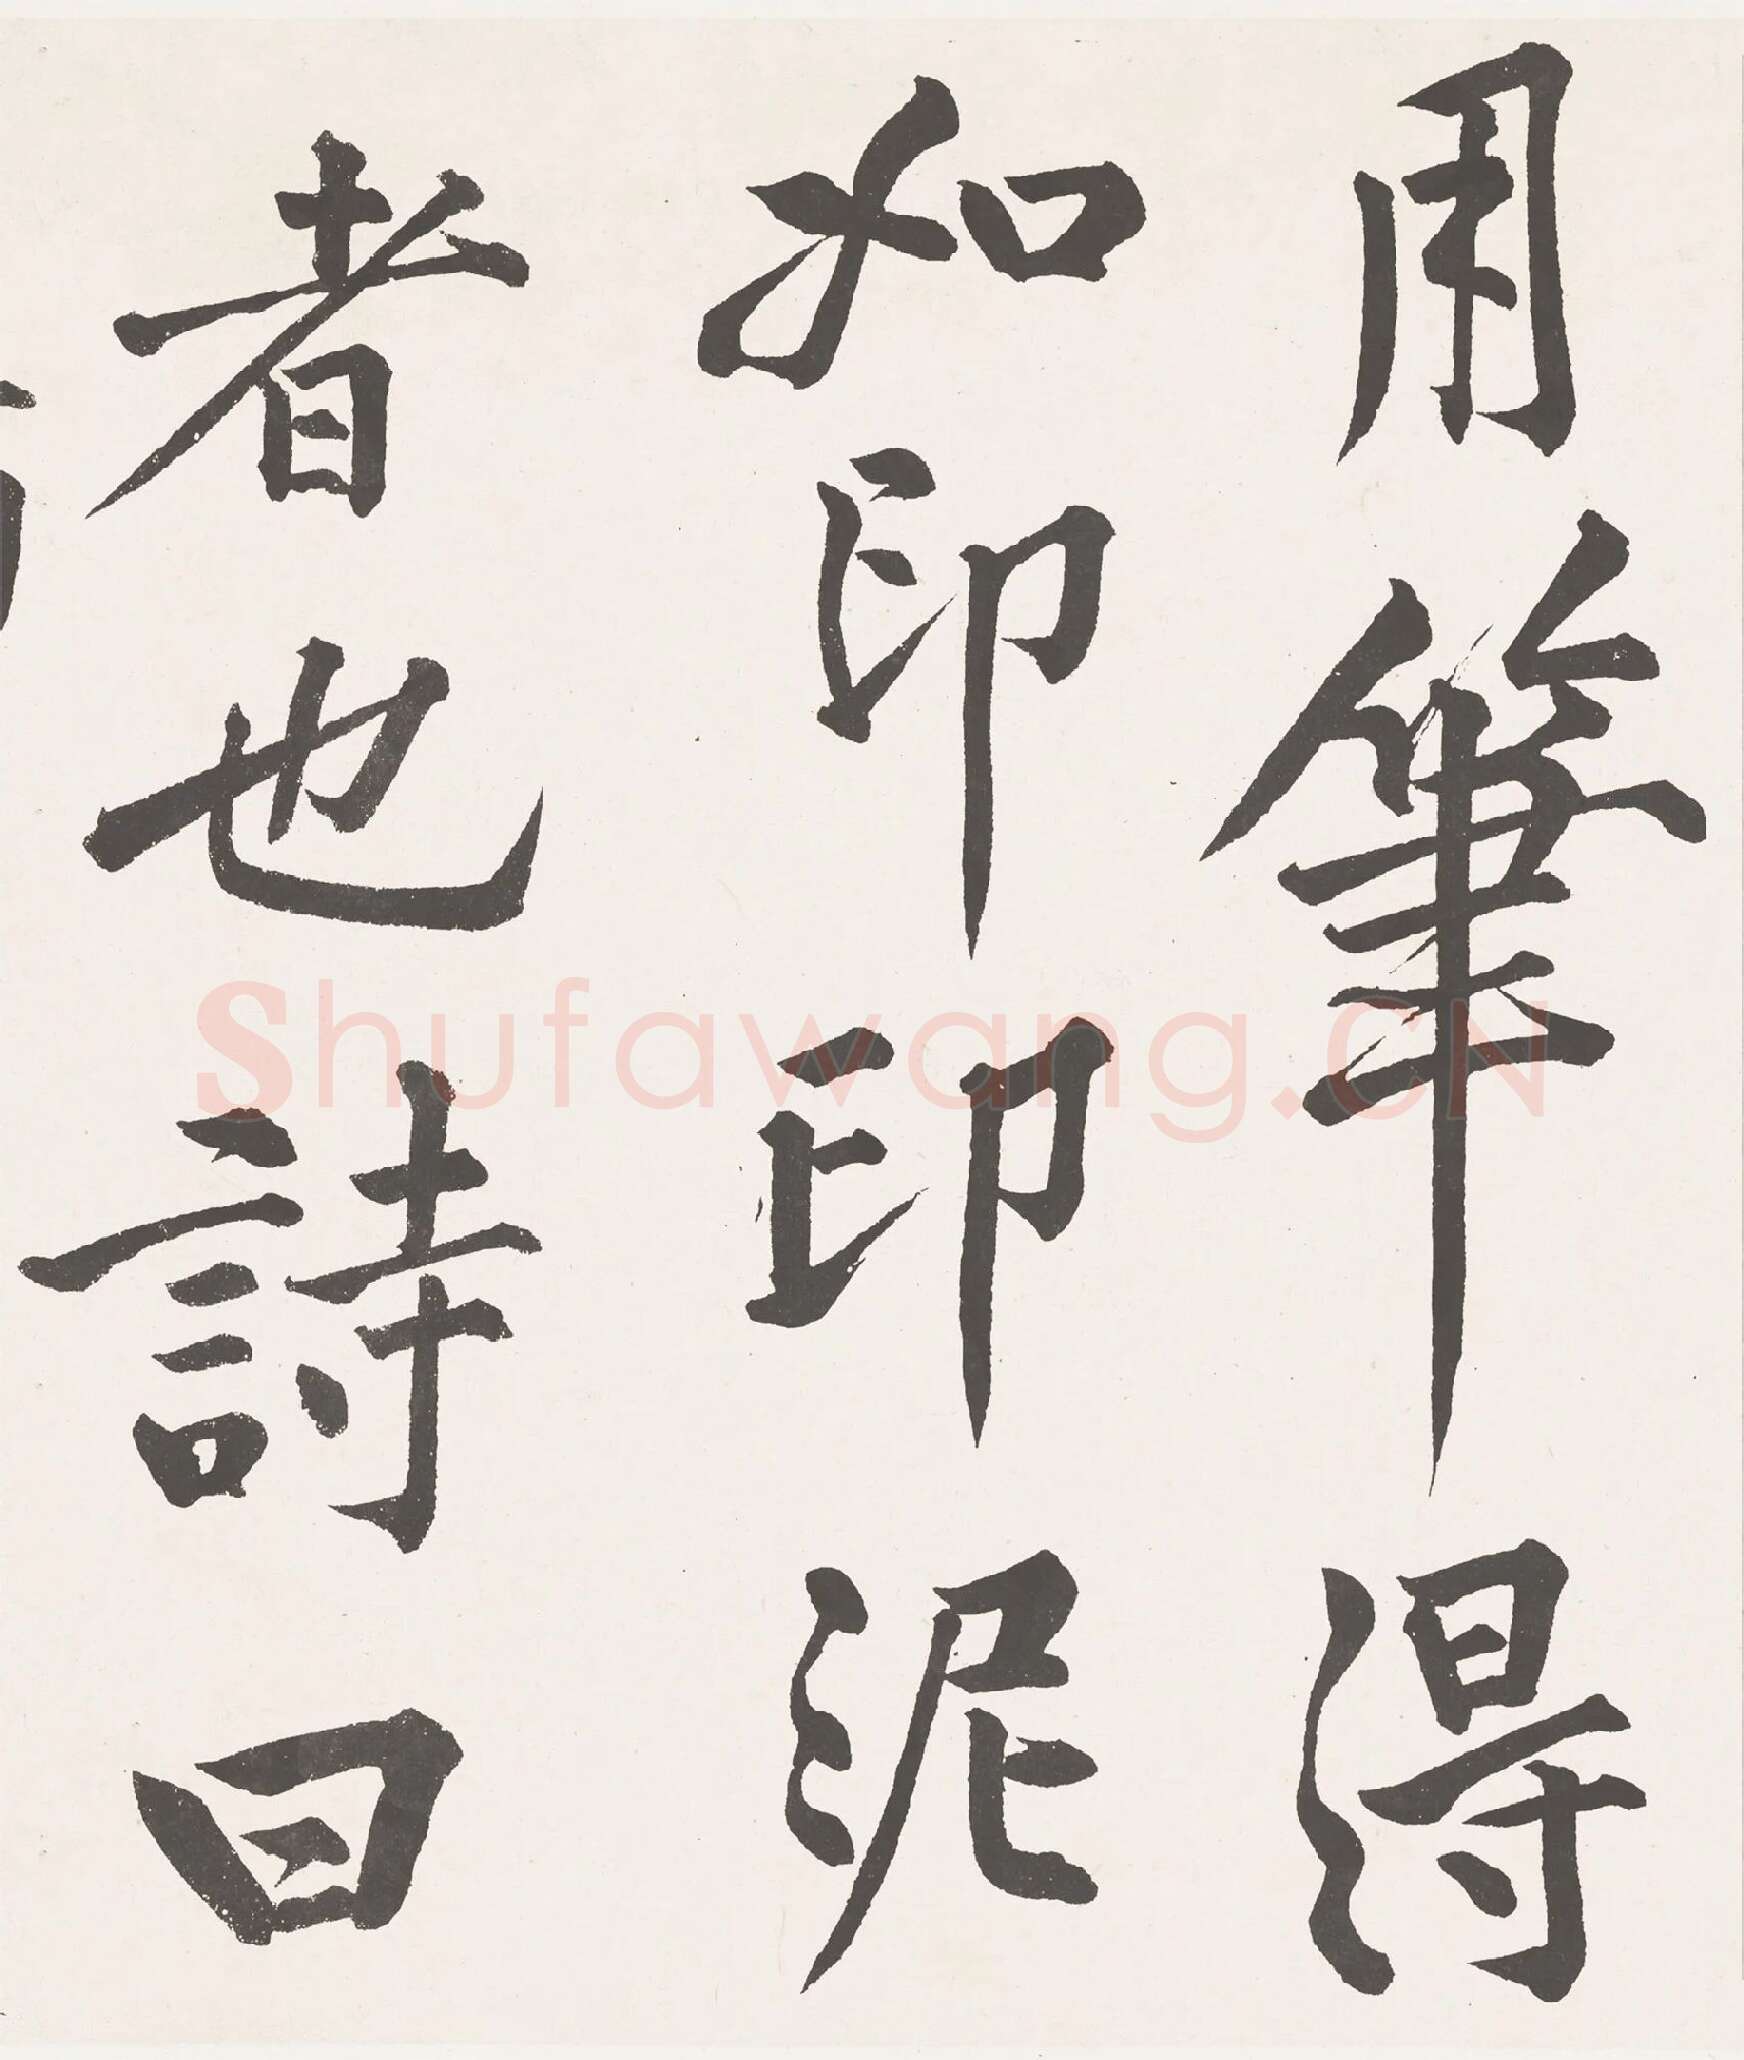 用筆得
如印印泥
者也詩曰
Shufawang.CN